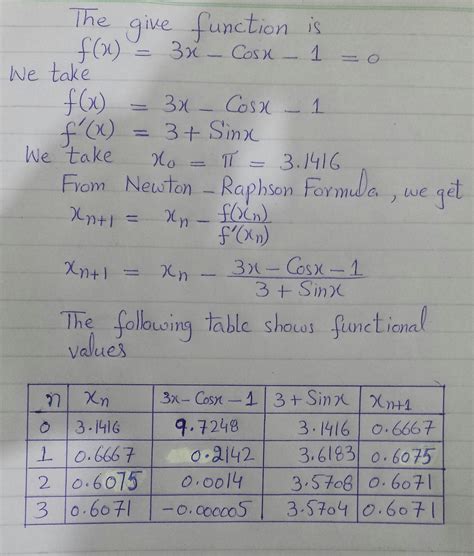 The give function is
f(x) = 3x - Cosx - 1 = 0
We take
f(x) = 3x - Cosx - 1
f'(x) = 3 + Sinx
We take x₀ = π = 3.1416
From Newton - Raphson Formula, we get
xₙ₊₁ = xₙ - f(xₙ)/f'(xₙ)
xₙ₊₁ = xₙ - (3x - Cosx - 1)/(3 + Sinx)
The following table shows functional
values
n xₙ 3x - Cosx - 1 3 + Sinx xₙ₊₁
0 3.1416 9.7248 3.1416 0.6667
1 0.6667 0.2142 3.6183 0.6075
2 0.6075 0.0014 3.5708 0.6071
3 0.6071 -0.000005 3.5704 0.6071